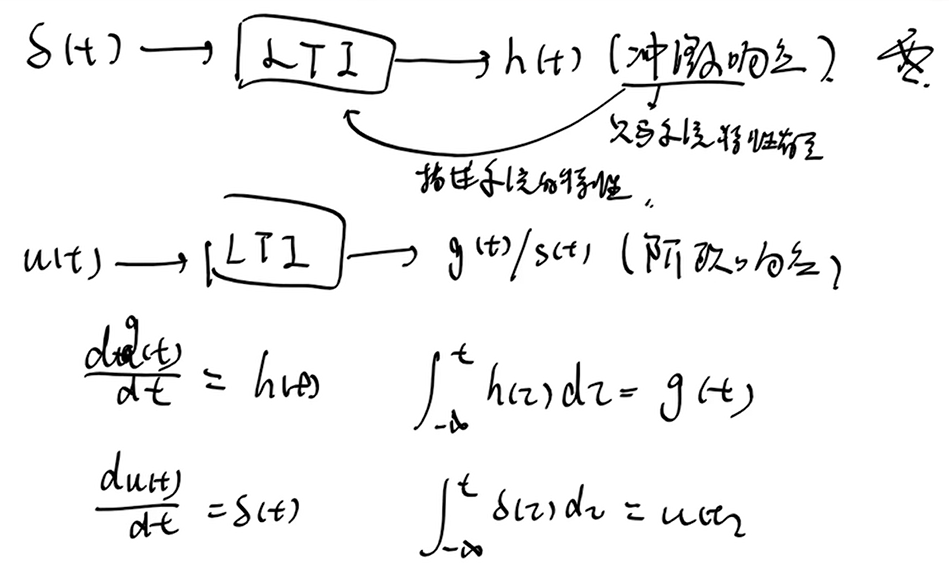 δ(t) → LTI → h(t) (冲激响应)
只与系统特性有关
描述系统的特性.
u(t) → LTI → g(t)/s(t) (阶跃响应)
dg(t)/dt = h(t) ∫_{-∞}^{t} h(τ)dτ = g(t)
du(t)/dt = δ(t) ∫_{-∞}^{t} δ(τ)dτ = u(t)